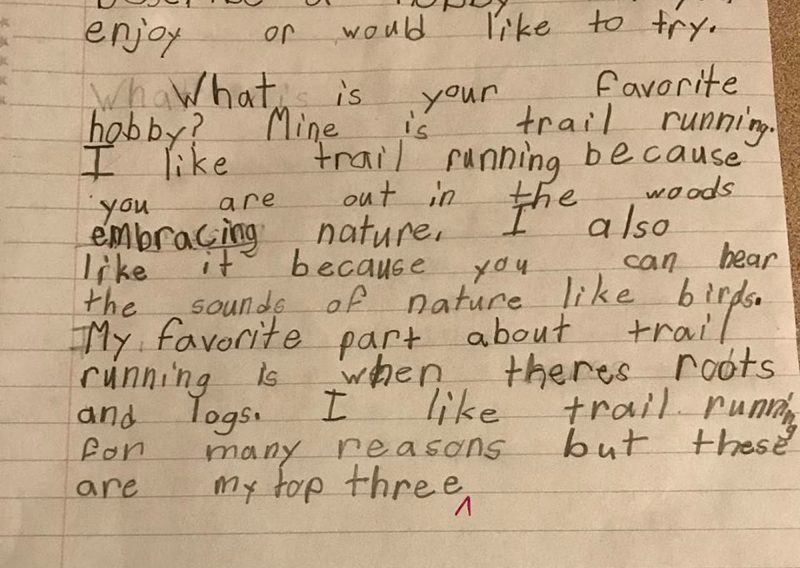 enjoy or would like to try.
What is your favorite
hobby? Mine is trail running.
I like trail running because
you are out in the woods
embracing nature. I also
like it because you can hear
the sounds of nature like birds.
My favorite part about trail
running is when theres roots
and logs. I like trail running
for many reasons but these
are my top three